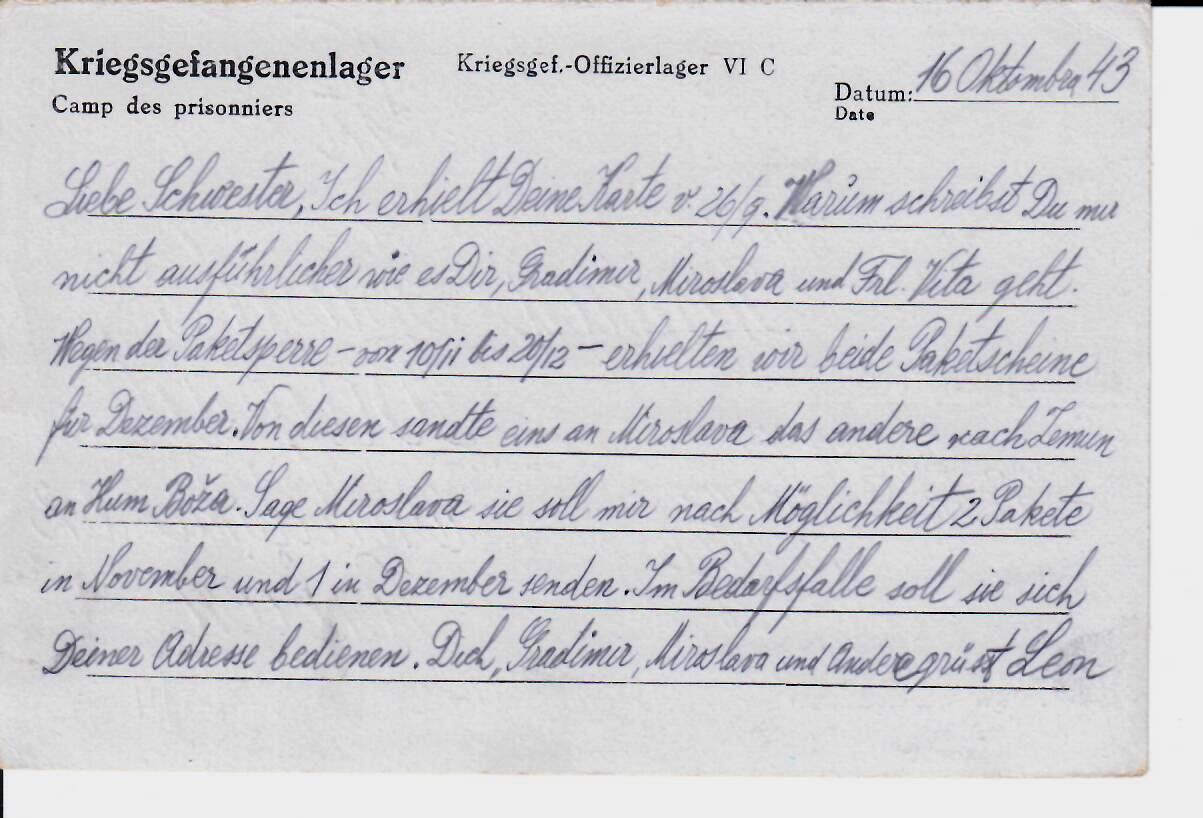 Kriegsgefangenenlager
Camp des prisonniers
Kriegsgef.-Offizierlager VI C
Datum: 16 Oktombra 43
Date
Liebe Schwester, Ich erhielt Deine Karte v. 26/9. Warum schreibst Du mir
nicht ausführlicher wie es Dir, Gradimir, Miroslava und Frl. Vita geht.
Wegen der Paketsperre – von 10/11 bis 20/12 – erhielten wir beide Paketscheine
für Dezember. Von diesen sandte eins an Miroslava das andere nach Zemun
an Hum Boža. Sage Miroslava sie soll mir nach Möglichkeit 2 Pakete
in November und 1 in Dezember senden. Im Bedarfsfalle soll sie sich
Deiner Adresse bedienen. Dich, Gradimir, Miroslava und Andere grüsst Leon